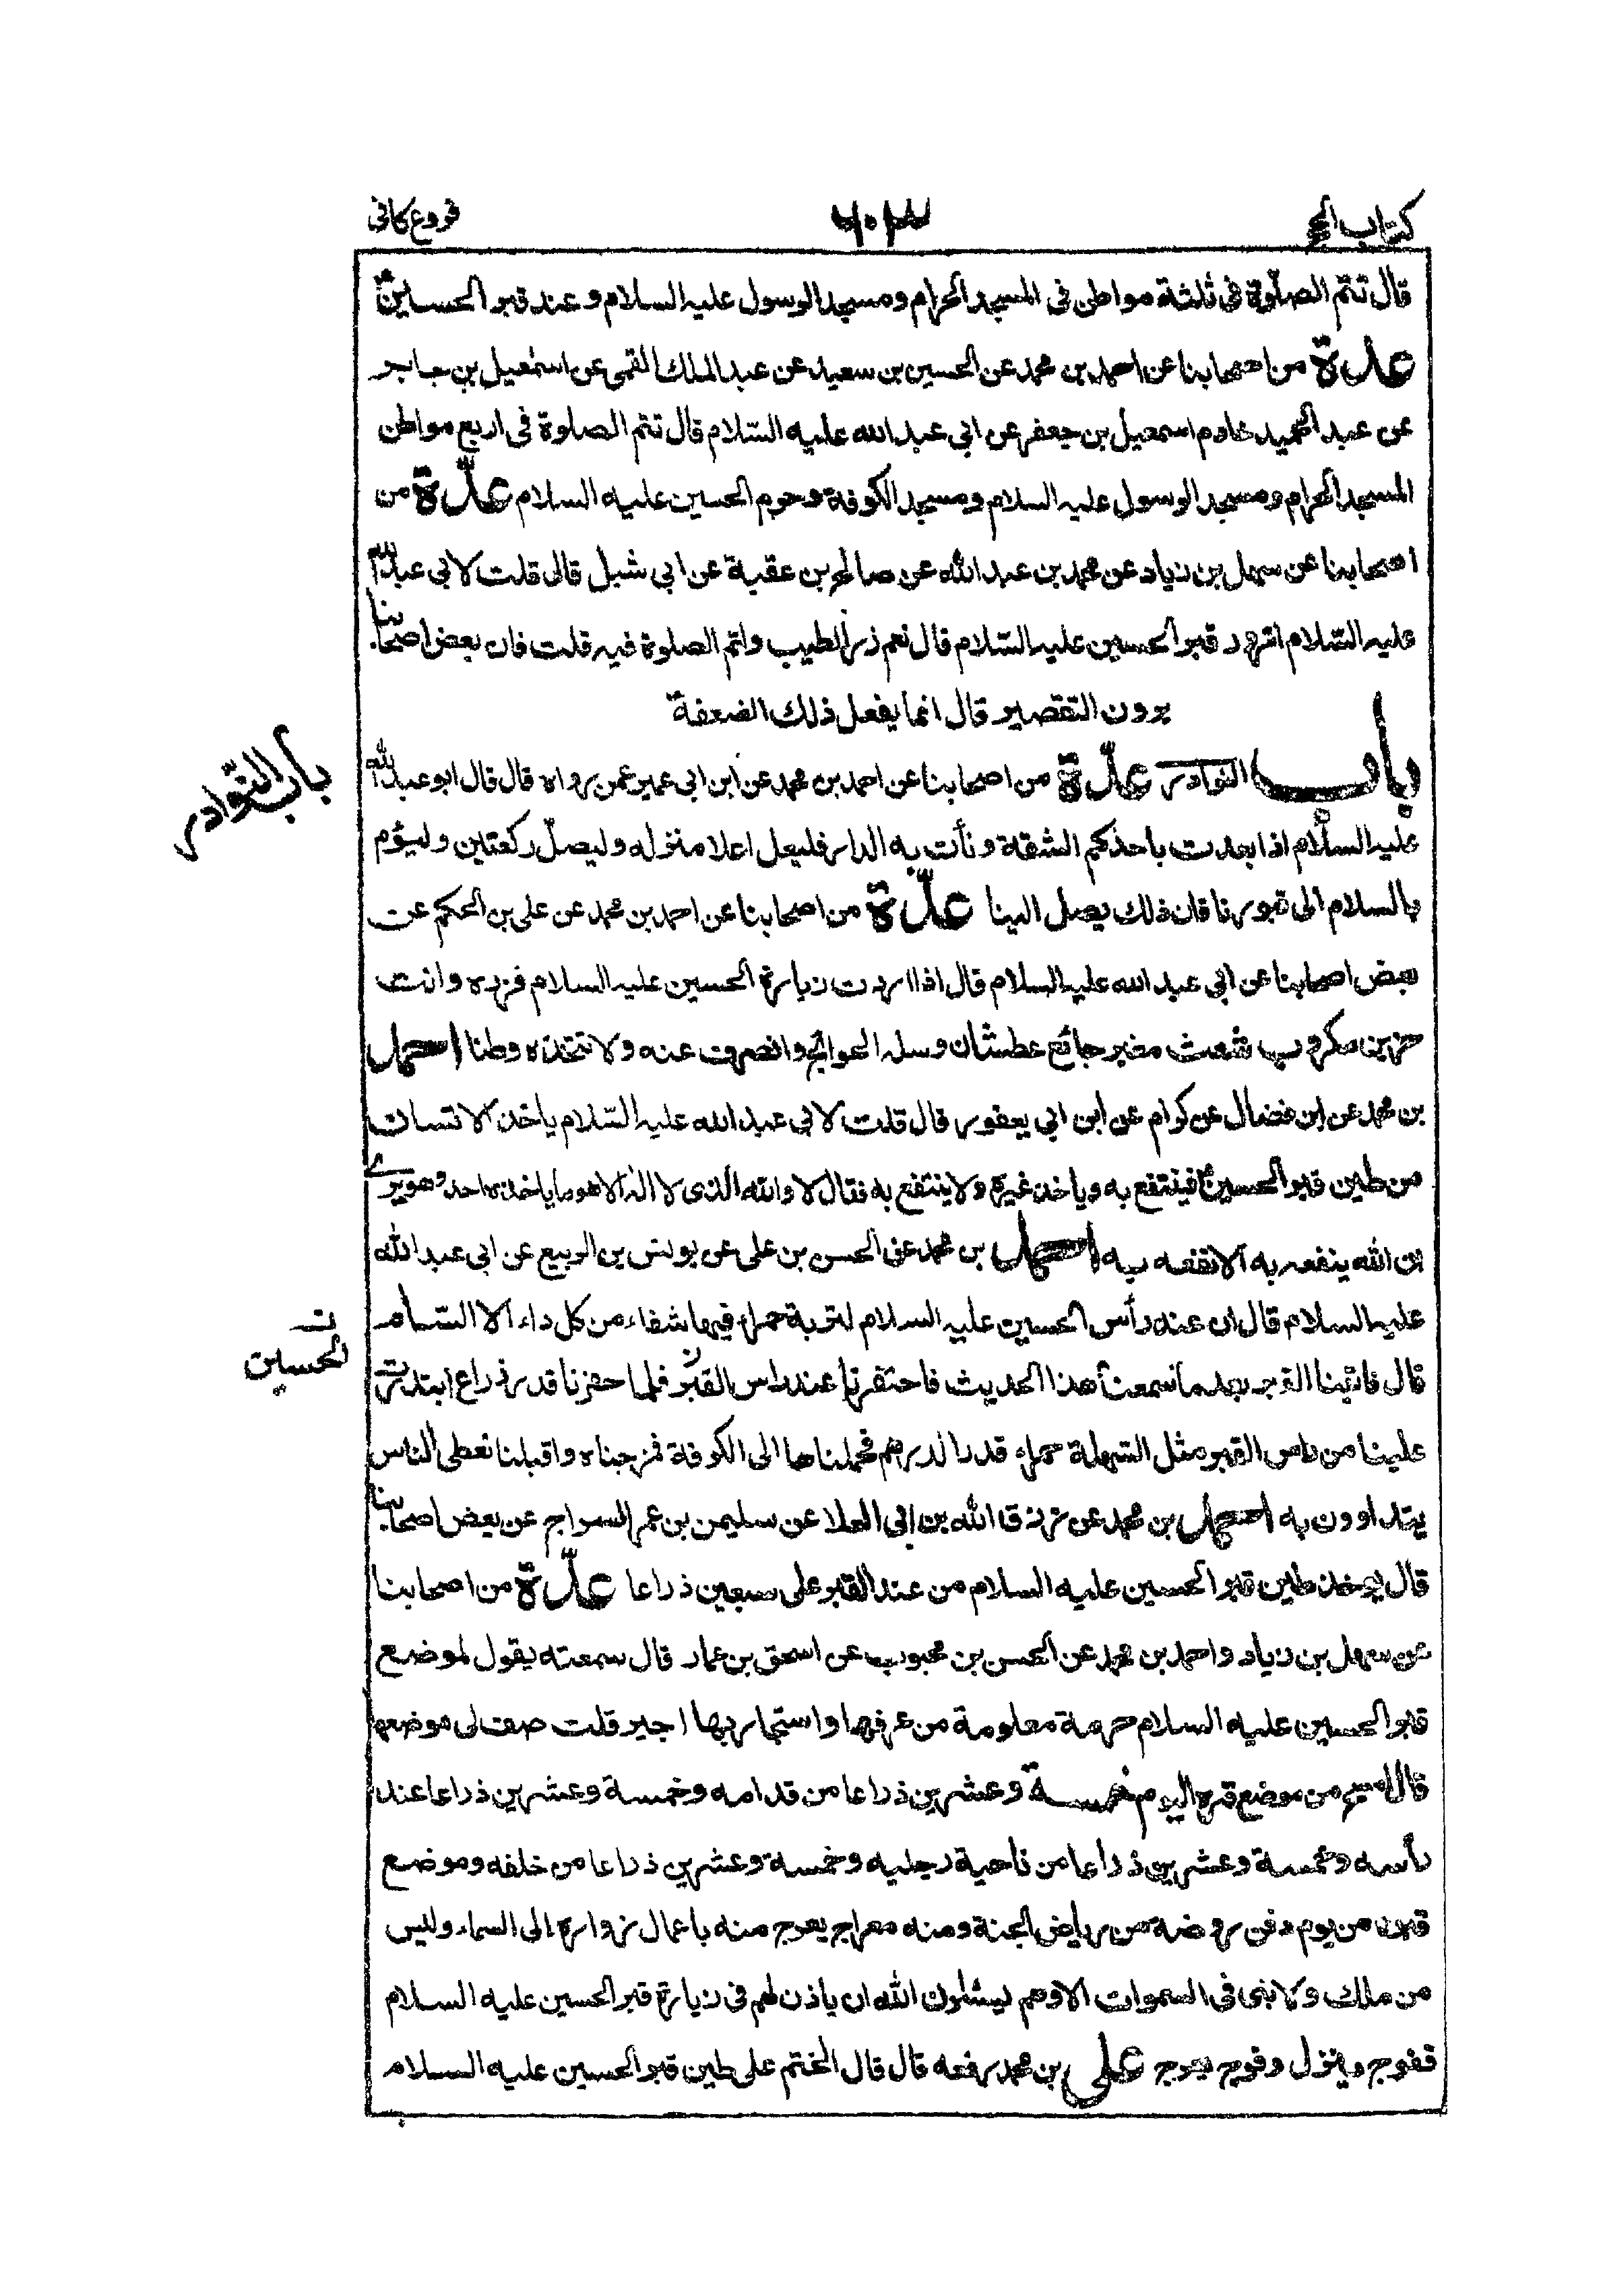 كتاب الحج
فروع كافى
قال تتم الصلوة فى ثلثة مواطن فى المسجد الحرام ومسجد الرسول عليه السلام وعند قبر الحسين ع
عدّة من اصحابنا عن احمد بن محمد عن الحسين بن سعيد عن عبد الملك القمى عن اسمعيل بن جابر
عن عبد الحميد خادم اسمعيل بن جعفر عن ابى عبد الله عليه السّلام قال تتم الصلوة فى اربع مواطن
المسجد الحرام ومسجد الرسول عليه السلام ومسجد الكوفة وحرم الحسين عليه السلام عدّة من
اصحابنا عن سهل بن زياد عن محمد بن عبد الله عن صالح بن عقبة عن ابى شبل قال قلت لابى عبد الله
عليه السّلام ازور قبر الحسين عليه السّلام قال نعم زر الطيب واتم الصلوة فيه قلت فان بعض اصحابنا
يرون التقصير قال انما يفعل ذلك الضعفة
باب النوادر عدّة من اصحابنا عن احمد بن محمد عن ابن ابى عمير عمن رواه قال قال ابو عبد الله
باب النّوادر
عليه السّلام اذا بعدت باحدكم الشقة ونأت به الدار فليعل اعلا منزله وليصلّ ركعتين وليؤم
بالسلام الى قبورنا فان ذلك يصل الينا عدّة من اصحابنا عن احمد بن محمد عن على بن الحكم عن
بعض اصحابنا عن ابى عبد الله عليه السلام قال اذا اردت زيارة الحسين عليه السلام فزره وانت
حزين مكروب شعث مغبر جائع عطشان وسله الحوائج وانصرف عنه ولا تتخذه وطنا احمد
بن محمد عن ابن فضال عن كرام عن ابن ابى يعفور قال قلت لابى عبد الله عليه السّلام ياخذ الانسان
من طين قبر الحسين ع فينتفع به وياخذ غيره ولا ينتفع به فقال لا والله الذى لا اله الا هو ما ياخذه احد وهو يرى
ان الله ينفعه به الا نفعه به احمد بن محمد عن الحسن بن على عن يونس بن الربيع عن ابى عبد الله
عليه السلام قال ان عند رأس الحسين عليه السلام لتربة حمراء فيها شفاء من كل داء الا السّام
الحسين
قال فاتينا القبر بعد ما سمعنا هذا الحديث فاحتفرنا عند راس القبر فلما حفرنا قدر ذراع ابتدرت
علينا من راس القبر مثل السّهلة حمراء قدر الدرهم فحملناها الى الكوفة فمزجناه واقبلنا نعطى الناس
يتداوون به احمد بن محمد عن رزق الله بن ابى العلا عن سليمن بن عمر السراج عن بعض اصحابنا
قال يوخذ طين قبر الحسين عليه السلام من عند القبر على سبعين ذراعا عدّة من اصحابنا
عن سهل بن زياد واحمد بن محمد عن الحسن بن محبوب عن اسحق بن عمار قال سمعته يقول لموضع
قبر الحسين عليه السلام حرمة معلومة من عرفها واستجار بها اجير قلت صف لى موضعها
قال امسح من موضع قبره اليوم خمسة وعشرين ذراعا من قدامه وخمسة وعشرين ذراعا عند
رأسه وخمسة وعشرين ذراعا من ناحية رجليه وخمسة وعشرين ذراعا من خلفه وموضع
قبره من يوم دفن روضة من رياض الجنة ومنه معراج يعرج منه باعمال زواره الى السماء وليس
من ملك ولا نبى فى السموات الا وهم يسئلون الله ان ياذن لهم فى زيارة قبر الحسين عليه السلام
ففوج ينزل وفوج يعرج على بن محمد رفعه قال قال الختم على طين قبر الحسين عليه السلام